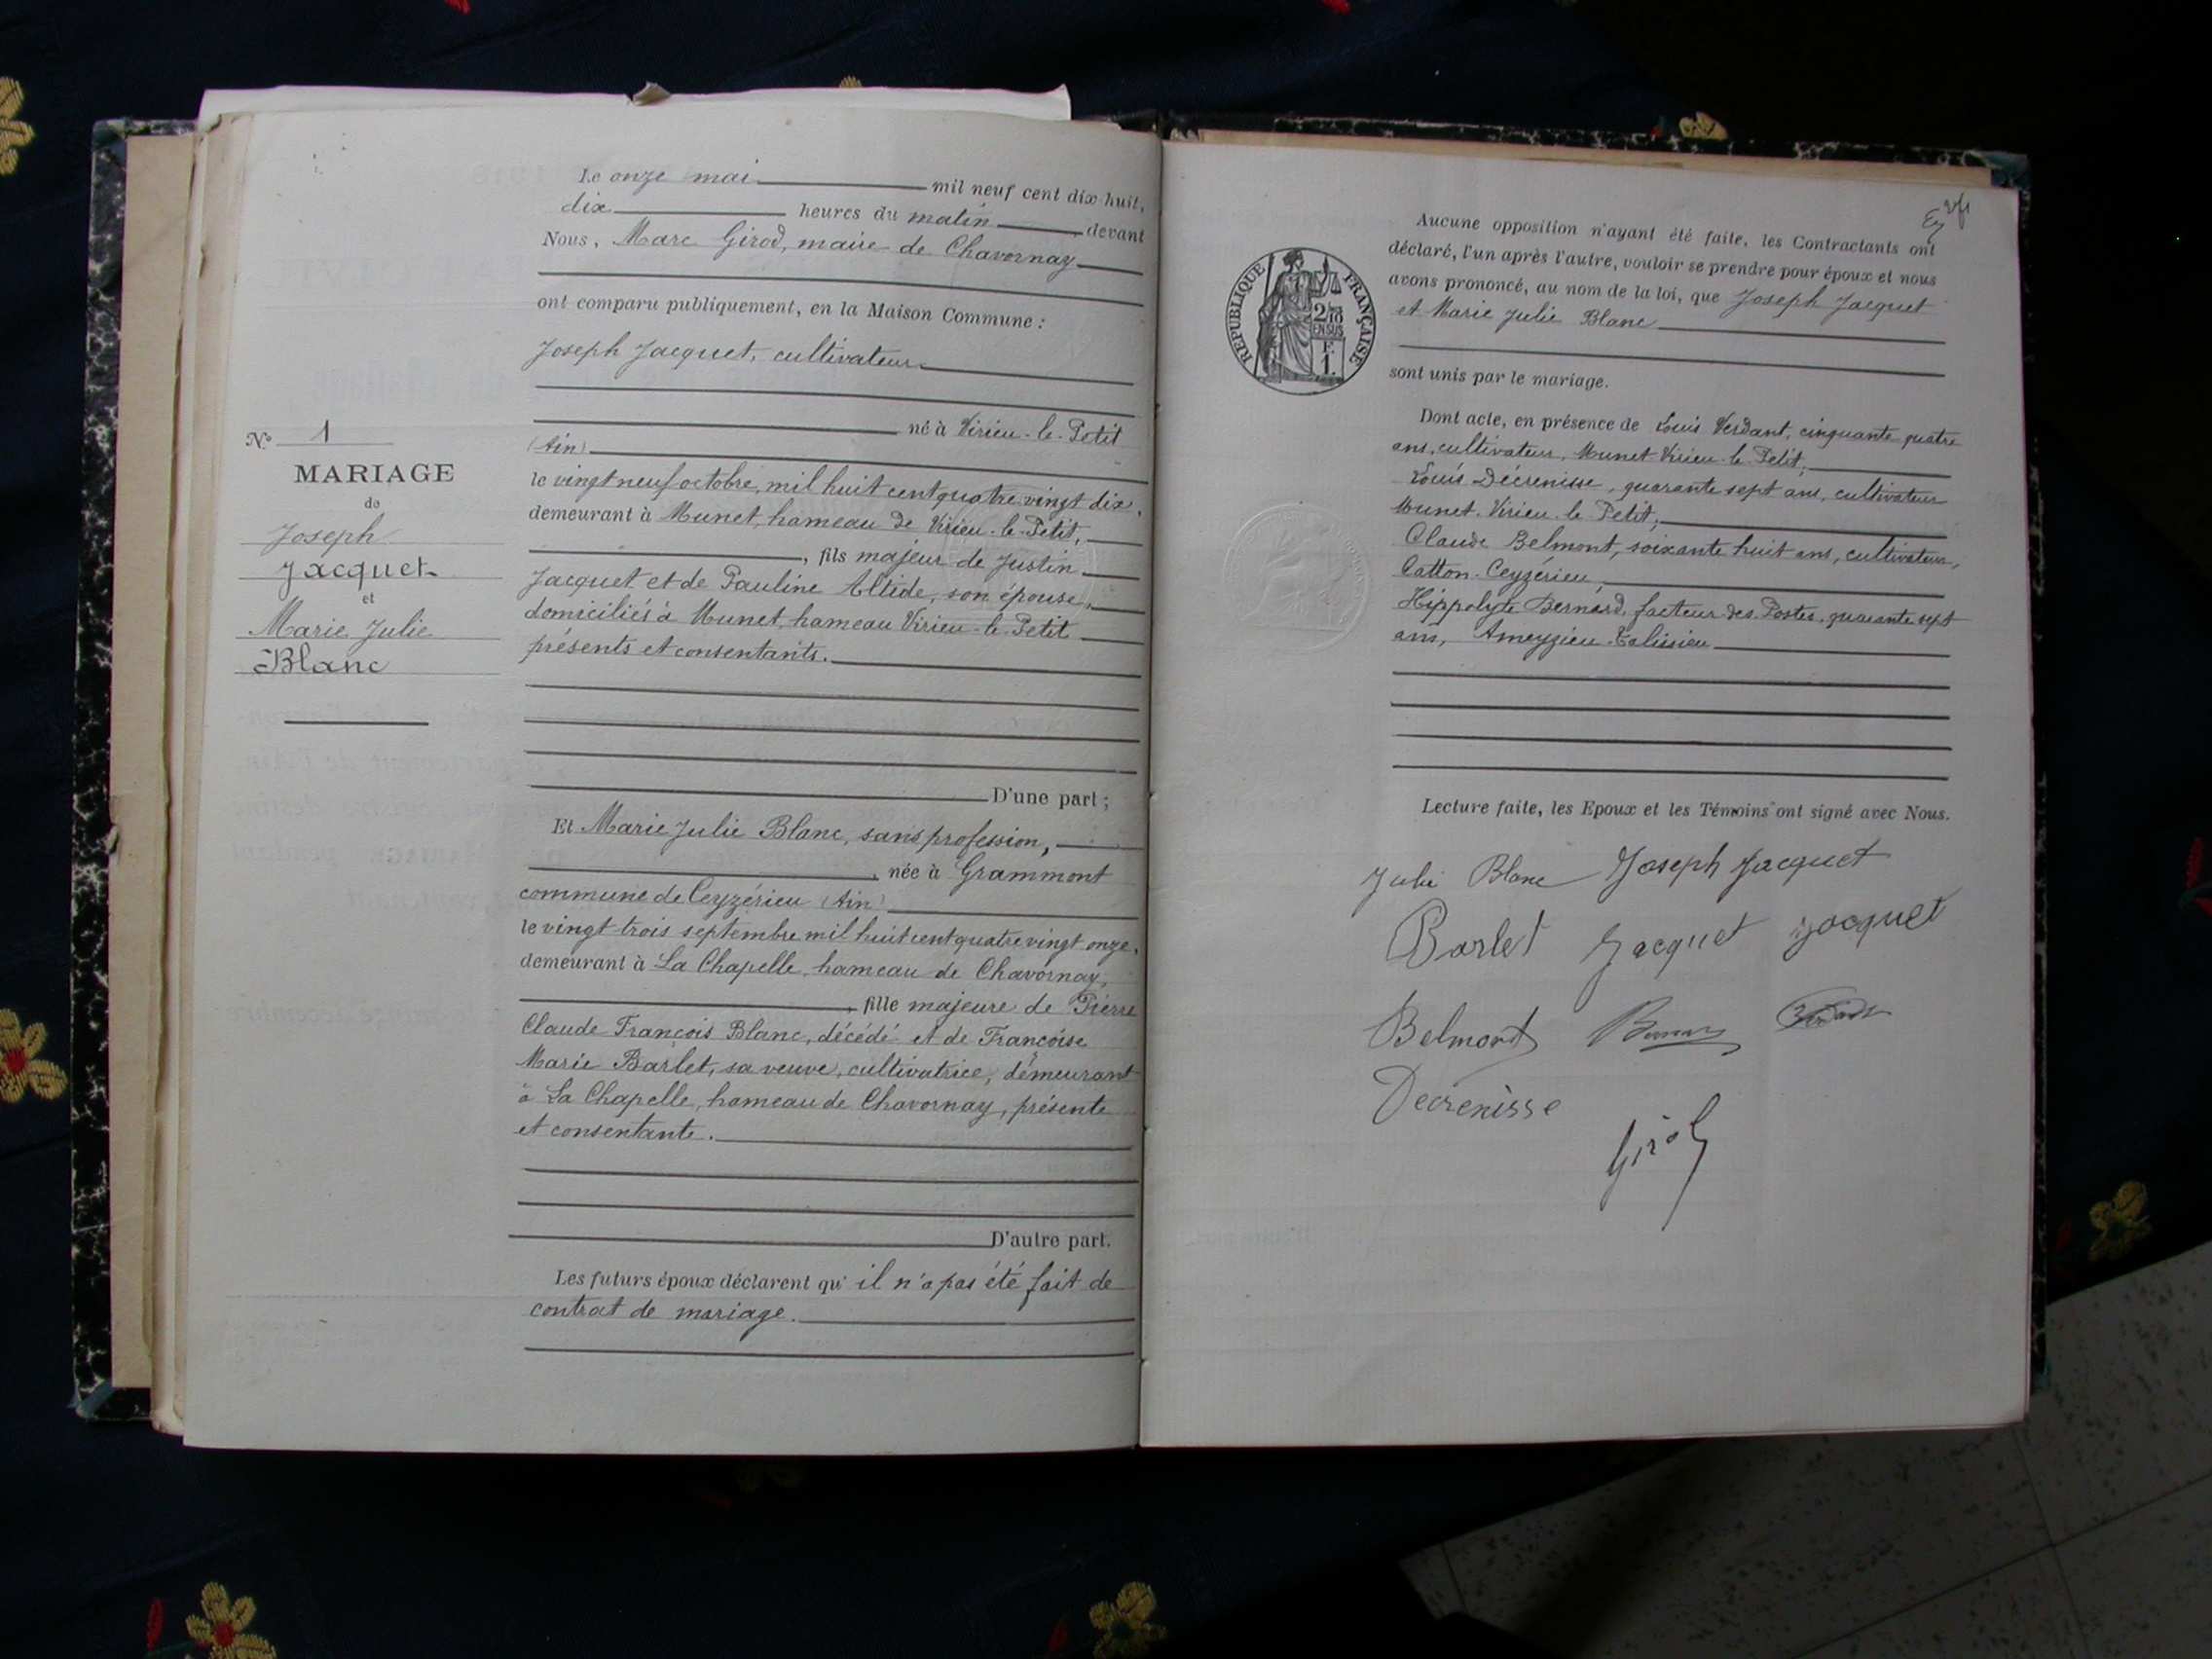 Le onze mai mil neuf cent dix huit,
dix heures du matin, devant
Nous, Marc Girod, maire de Chavornay
ont comparu publiquement, en la Maison Commune :
Joseph Jacquet, cultivateur
né à Virieu-le-Petit
(Ain)
le vingt neuf octobre, mil huit cent quatre vingt dix,
demeurant à Munet, hameau de Virieu-le-Petit,
, fils majeur de Justin
Jacquet et de Pauline Altide, son épouse,
domiciliés à Munet, hameau Virieu-le-Petit
présents et consentants.
D'une part ;
Et Marie Julie Blanc, sans profession,
, née à Grammont
commune de Ceyzérieu (Ain)
le vingt trois septembre mil huit cent quatre vingt onze,
demeurant à La Chapelle, hameau de Chavornay,
, fille majeure de Pierre
Claude François Blanc, décédé et de Françoise
Marie Barlet, sa veuve, cultivatrice, demeurant
à La Chapelle, hameau de Chavornay, présente
et consentante.
D'autre part.
Les futurs époux déclarent qu' il n'a pas été fait de
contrat de mariage.
N° 1
MARIAGE
de
Joseph
Jacquet
et
Marie Julie
Blanc
Aucune opposition n'ayant été faite, les Contractants ont
déclaré, l'un après l'autre, vouloir se prendre pour époux et nous
avons prononcé, au nom de la loi, que Joseph Jacquet
et Marie Julie Blanc
sont unis par le mariage.
Dont acte, en présence de Louis Verdant, cinquante quatre
ans, cultivateur, Munet Virieu-le-Petit;
Louis Décrenisse, quarante sept ans, cultivateur
Munet. Virieu-le-Petit;
Claude Belmont, soixante huit ans, cultivateur,
Catton-Ceyzérieu
Hippolyte Bernard, facteur des Postes, quarante sept
ans, Ameyzieu-Talissieu
Lecture faite, les Epoux et les Témoins ont signé avec Nous.
Julie Blanc Joseph Jacquet
Barlet Jacquet Jacquet
Belmont
Decrenisse
Girod
REPUBLIQUE FRANÇAISE
2/10
EN SUS
F.
1.